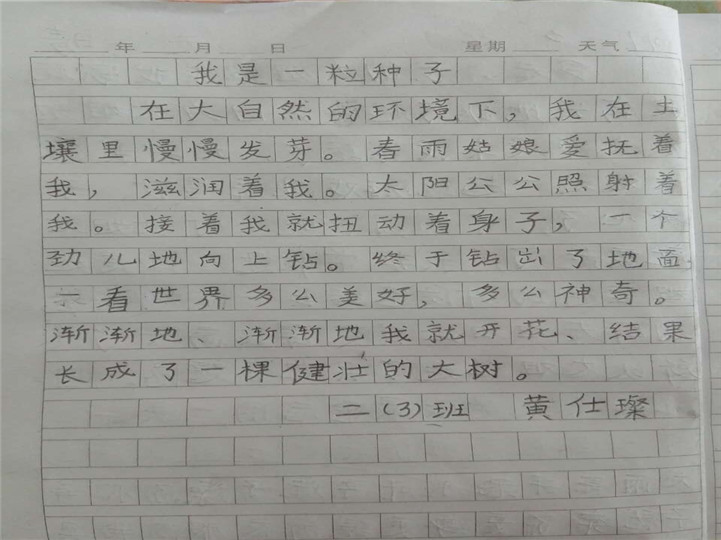 年 月 日 星期 天气
我是一粒种子
在大自然的环境下，我在土
壤里慢慢发芽。春雨姑娘爱抚着
我，滋润着我。太阳公公照射着
我。接着我就扭动着身子，一个
劲儿地向上钻。终于钻出了地面
一看世界多公美好，多公神奇。
渐渐地、渐渐地我就开花、结果
长成了一棵健壮的大树。
二(3)班 黄仕璨